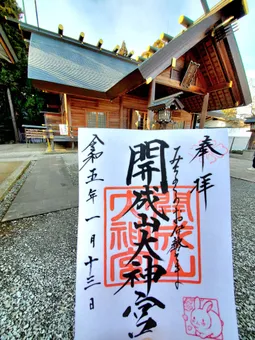 奉拝
みちのくのお伊勢さま
開成山大神宮
開成山
大神宮
令和五年一月十三日